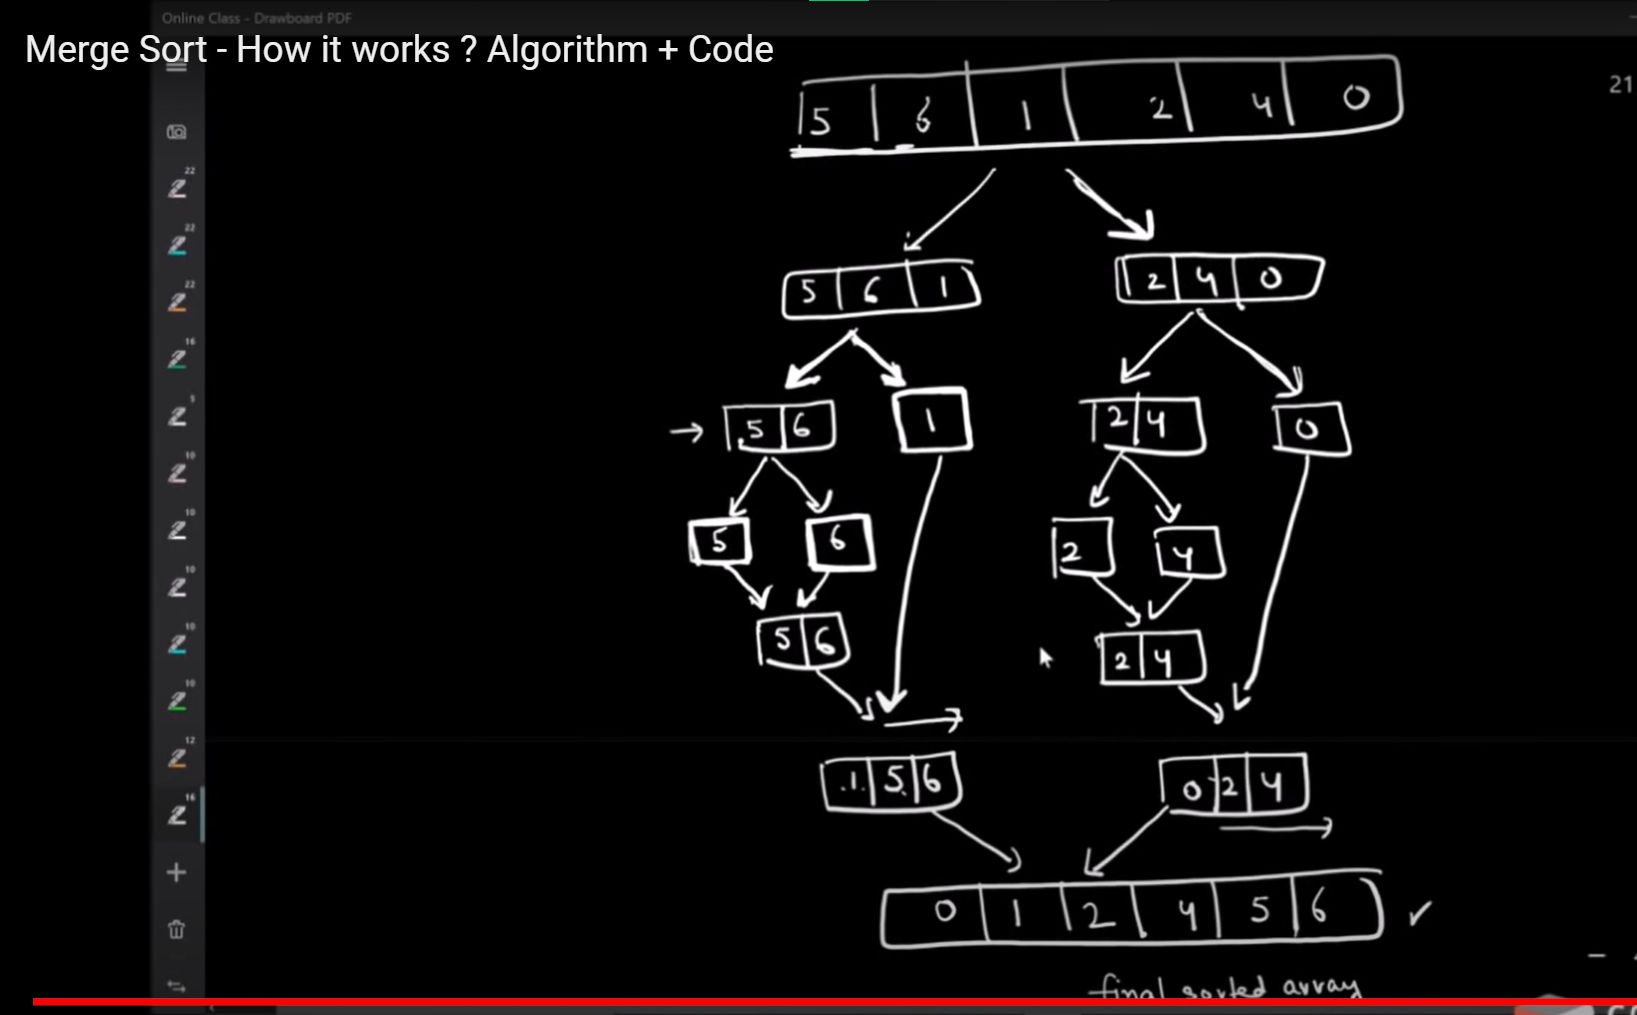 Online Class - Drawboard PDF
Merge Sort - How it works ? Algorithm + Code
21
5 6 1 2 4 0
5 6 1 2 4 0
5 6 1 2 4 0
5 6 2 4
5 6 2 4
1 5 6 0 2 4
0 1 2 4 5 6
final sorted array
22
22
22
16
5
10
10
10
10
10
12
16